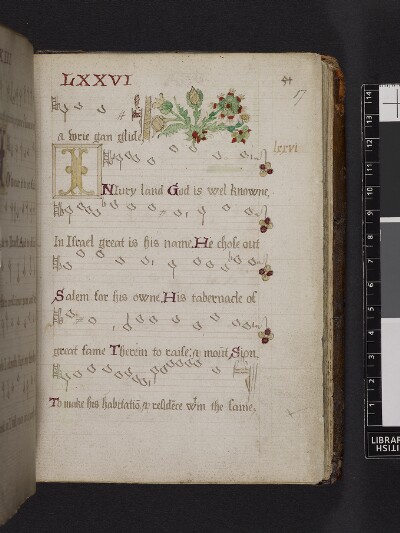 LXXVI
57
a wrie gan glide,
lxxvi
INIury land God is wel knowne,
In Israel great is his name. He chose out
Salem for his owne. His tabernacle of
great fame Therein to raise: & mout Sion,
To make his habitatiō & residēce wtin the same.
14
13
12
11
10
9
8
7
6
5
4
3
2
1
LIBRAR
HSITIЯB